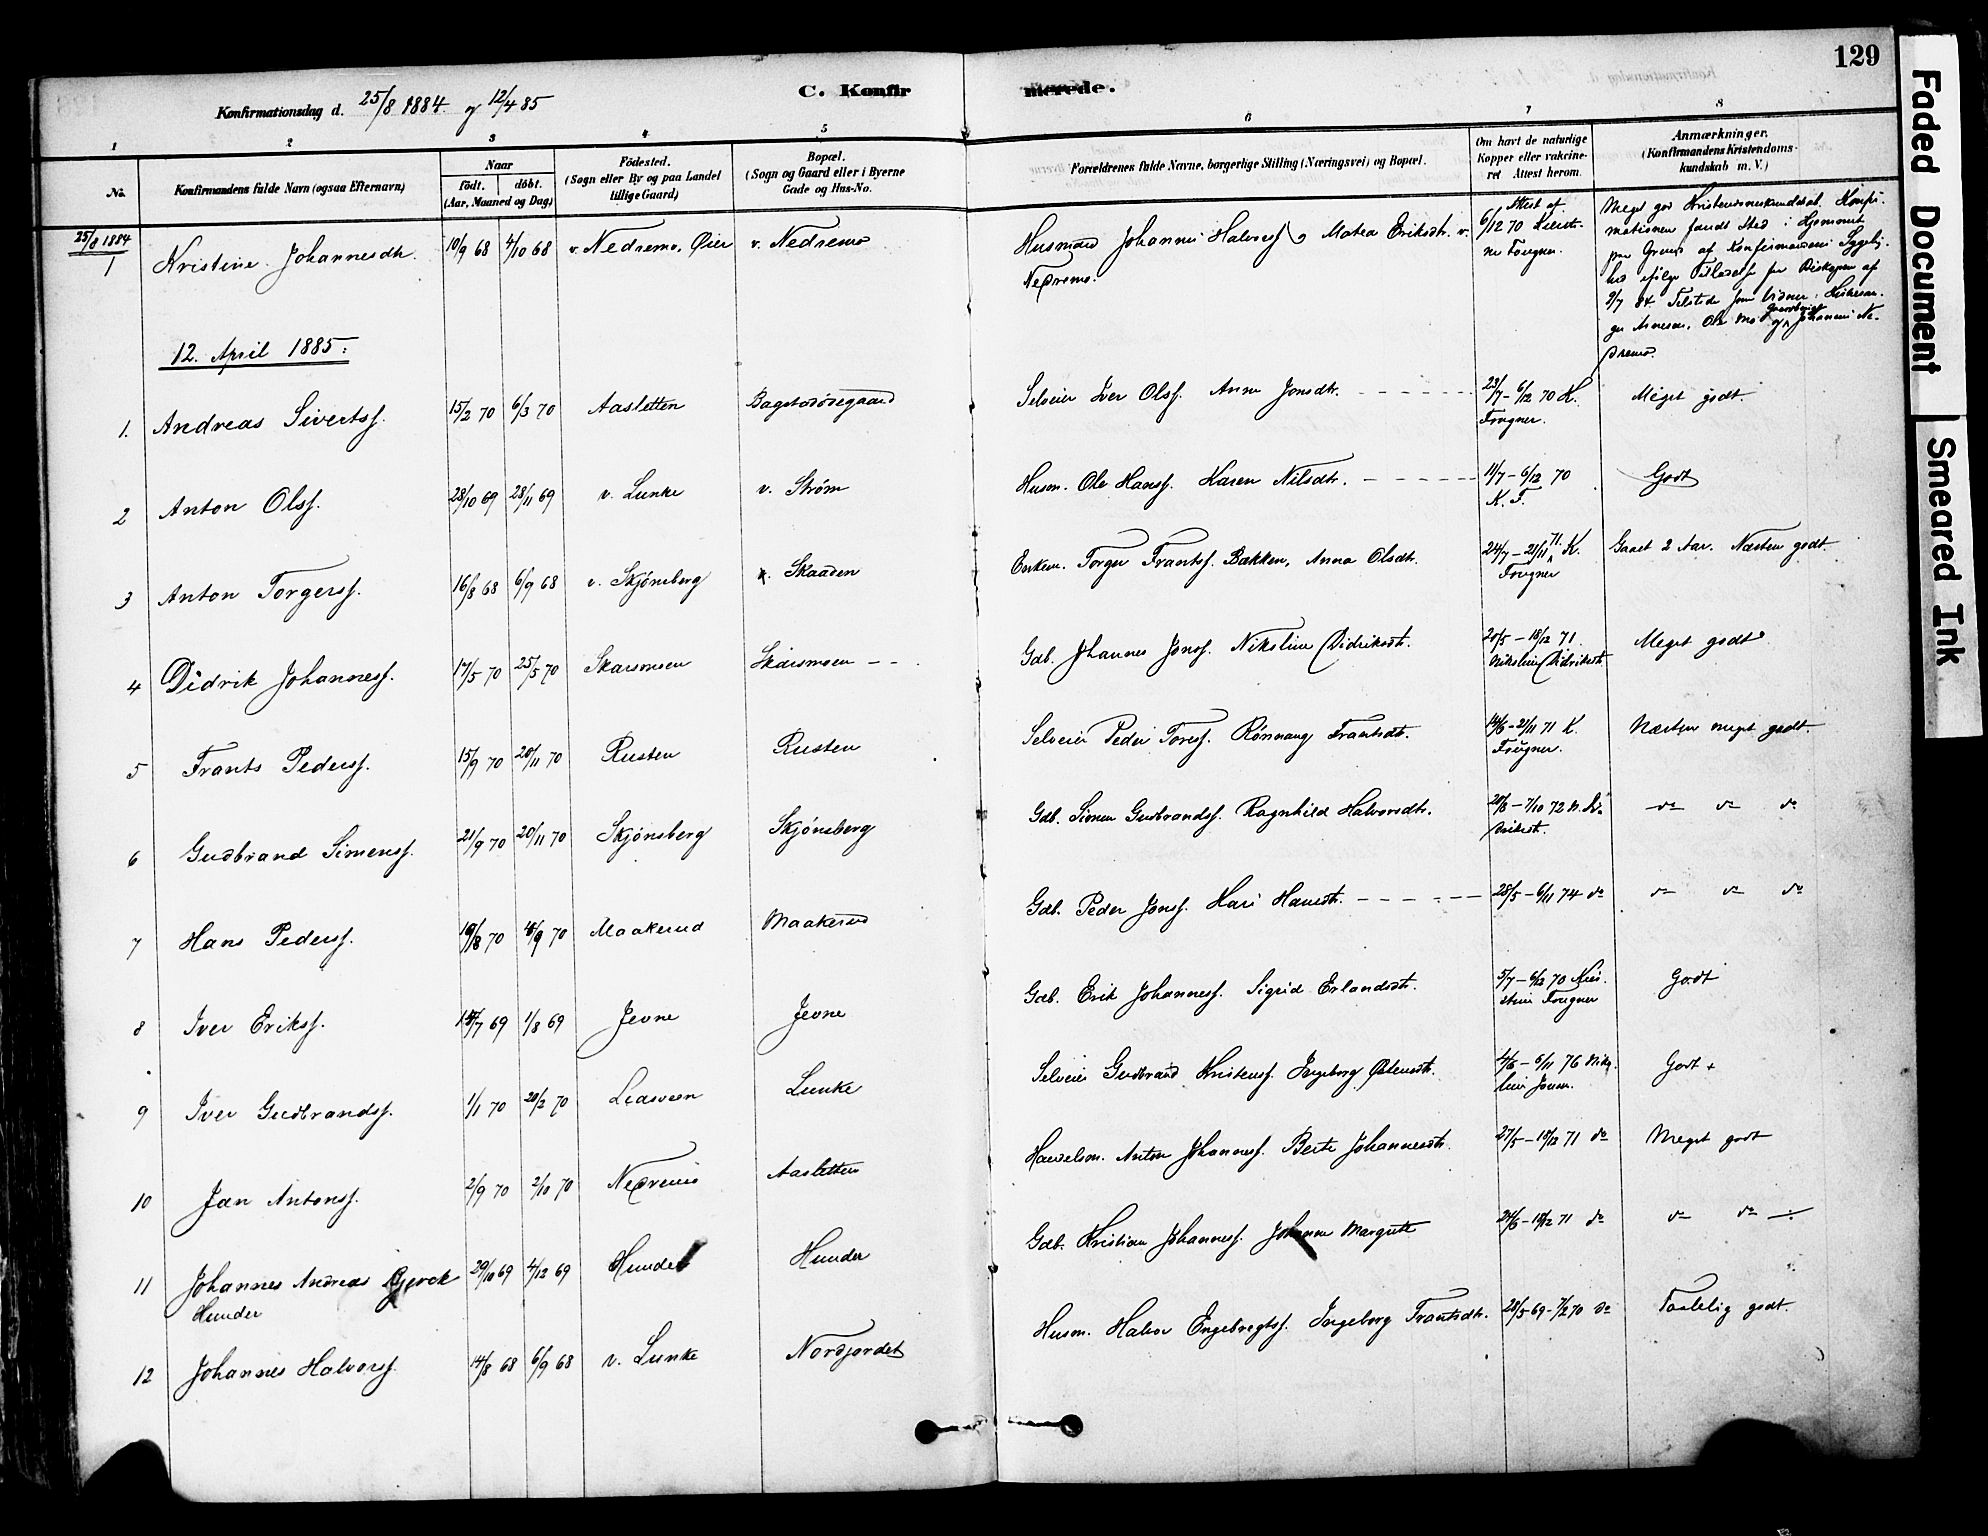 129
Konfirmationsdag d. 25/8 1884. og 12/4 85
C. Konfirmerede.
1 2 3 4 5 6 7 8
No.
Konfirmandens fulde Navn (ogsaa Efternavn)
Naar
født. døbt.
(Aar, Maaned og Dag)
Fødested.
(Sogn eller By og paa Landet
tillige Gaard)
Bopæl.
(Sogn og Gaard eller i Byerne
Gade og Hus-No.
Forældrenes fulde Navne, borgerlige Stilling (Næringsvei) og Bopæl.
Om havt de naturlige
Kopper eller vakcine-
ret Attest herom.
Anmærkninger.
(Konfirmandens Kristendoms-
kundskab m. V.)
25/8 1884
1 Kristine Johannesdtr. 10/9 68 4/10 68 v. Nedremo, Øier v. Nedremo Husmand Johannes Halvorss. og Matea Eriksdtr. v.
Nedremo.
Attest af
6/12 70 Kirsti-
ne Frugner.
Meget god Kristendomskundskab. Konfir-
mationen fandt Sted i Hjemmet
paa Grund af Konfirmandens Sygelig-
hed ifølge Tilladelse fra Biskopen af
9/7 84. Tilstede som Vidner:
Arnesen, Ole Mo Gaardbruger og Johannes Ne-
dremo.
12. April 1885:
1. Andreas Sivertss. 15/2 70 6/3 70 Aasletten Bagstadødegaard Selveier Iver Olss. Anne Jonsdtr. 23/7 - 6/12 70 K.
Frugner. Meget godt.
2 Anton Olss. 28/10 69 28/11 69 v. Lunke v. Strøm Husm. Ole Hanss. Karen Nilsdtr. 11/7 - 6/12 70
K. F. Godt
3 Anton Torgerss. 16/8 68 6/9 68 v. Skjønsberg v. Skaaden Enkem. Torger Frantss. Bakken, Anna Olsdtr. 24/7 - 21/11 71. K.
Frugner Gaaet 2 Aar. Næsten godt.
4 Didrik Johanness. 17/5 70 25/5 70 Skarsmoen Skarsmoen - - Gdb. Johannes Jonss. Nikoline Didriksdtr. 20/5 - 18/12 71.
Nikoline Didriksdt. Meget godt
5 Frants Pederss. 15/9 70 20/11 70 Rusten Rusten Selveier Peder Toress. Rønnaug Frantsdtr. 14/6 - 21/11 71 K.
Frugner. Næsten meget godt.
6 Gudbrand Simenss. 21/9 70 20/11 70 Skjønsberg Skjønsberg Gdb. Simen Gudbrandss. Ragnhild Halvorsdtr. 20/8 - 7/10 72 N. Di-
driksdt. do do do
7 Hans Pederss. 19/8 70 18/9 70 Maakerud Maakerud Gdb. Peder Jonss. Kari Hansdtr. 28/5 - 6/11 74 do do do do
8 Iver Erikss. 15/7 69 1/8 69 Jevne Jevne Gdb. Erik Johanness. Sigrid Erlandsdtr. 5/7 - 6/12 70 Kir-
stine Frugner Godt
9 Iver Gudbrandss. 1/1 70 20/2 70 Lunke Selveier Gudbrand Kristenss. Ingeborg Østensdtr. 4/6 - 6/11 76 Niko-
line Godt +
10 Jan Antonss. 2/9 70 2/10 70 Nedremo Aasletten Handelsm. Anton Johanness. Berte Johannesdtr. 27/5 - 18/12 71 do Meget godt
11 Johannes Andreas Bjerck
Hunder 29/10 69 4/12 69 Hunder Hunder Gdb. Kristian Johanness. Johanne Margrete 24/6 - 18/12 71 do do do
12 Johannes Halvorss. 14/8 68 6/9 68 v. Lunke Nordjordet Husm. Halvor Engebregtss. Ingeborg Frantsdtr. 28/5 69 - 7/2 70 do Taalelig godt.
Faded Document
Smeared Ink